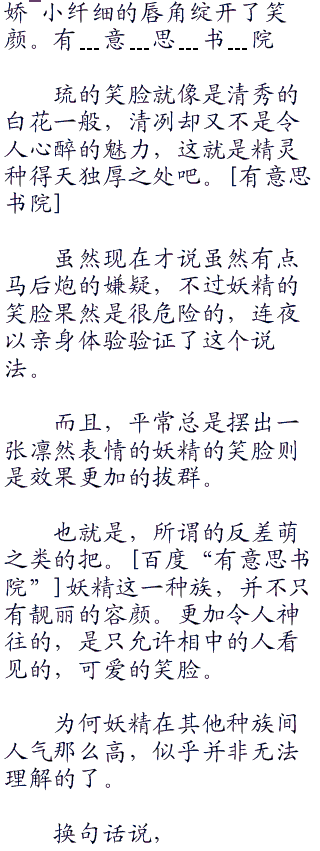 娇¯小纤细的唇角绽开了笑
颜。有---意---思---书---院
琉的笑脸就像是清秀的
白花一般，清冽却又不是令
人心醉的魅力，这就是精灵
种得天独厚之处吧。[有意思
书院]
虽然现在才说虽然有点
马后炮的嫌疑，不过妖精的
笑脸果然是很危险的，连夜
以亲身体验验证了这个说
法。
而且，平常总是摆出一
张凛然表情的妖精的笑脸则
是效果更加的拔群。
也就是，所谓的反差萌
之类的把。[百度“有意思书
院”]妖精这一种族，并不只
有靓丽的容颜。更加令人神
往的，是只允许相中的人看
见的，可爱的笑脸。
为何妖精在其他种族间
人气那么高，似乎并非无法
理解的了。
换句话说，